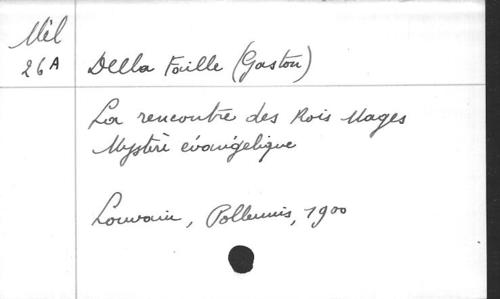 Mél
26A Della Faille (Gaston)
La rencontre des Rois Mages
Mystère évangélique
Louvain, Polleunis, 1900